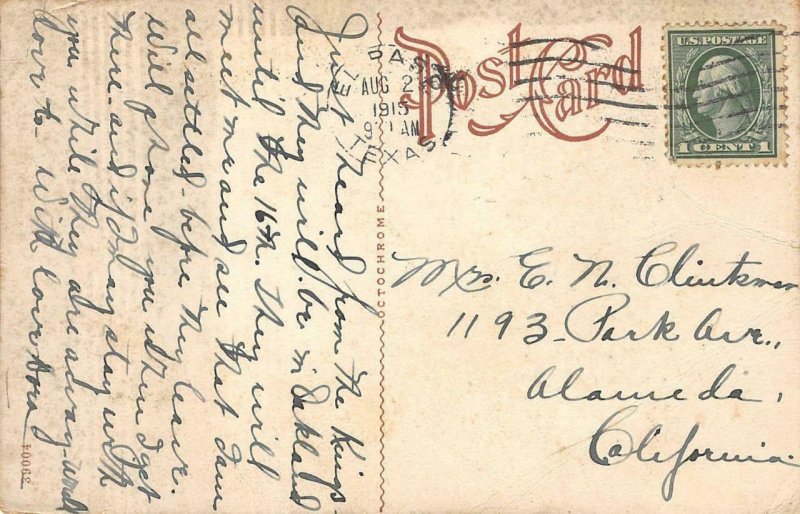 Just heard from the Kings
and they will be in Oakland
until the 16th. They will
meet me and see that I am
all settled before they leave.
Will phone you when I get
there and I may stay with
you while they are away. Would
love to. With love
40062
OCTOCHROME
Post Card
EL PASO
AUG 2
1915
9 AM
TEXAS
U.S. POSTAGE
1 CENT 1
Mrs. E. N. Clinkman
1193 - Park Ave.,
Alameda,
California.